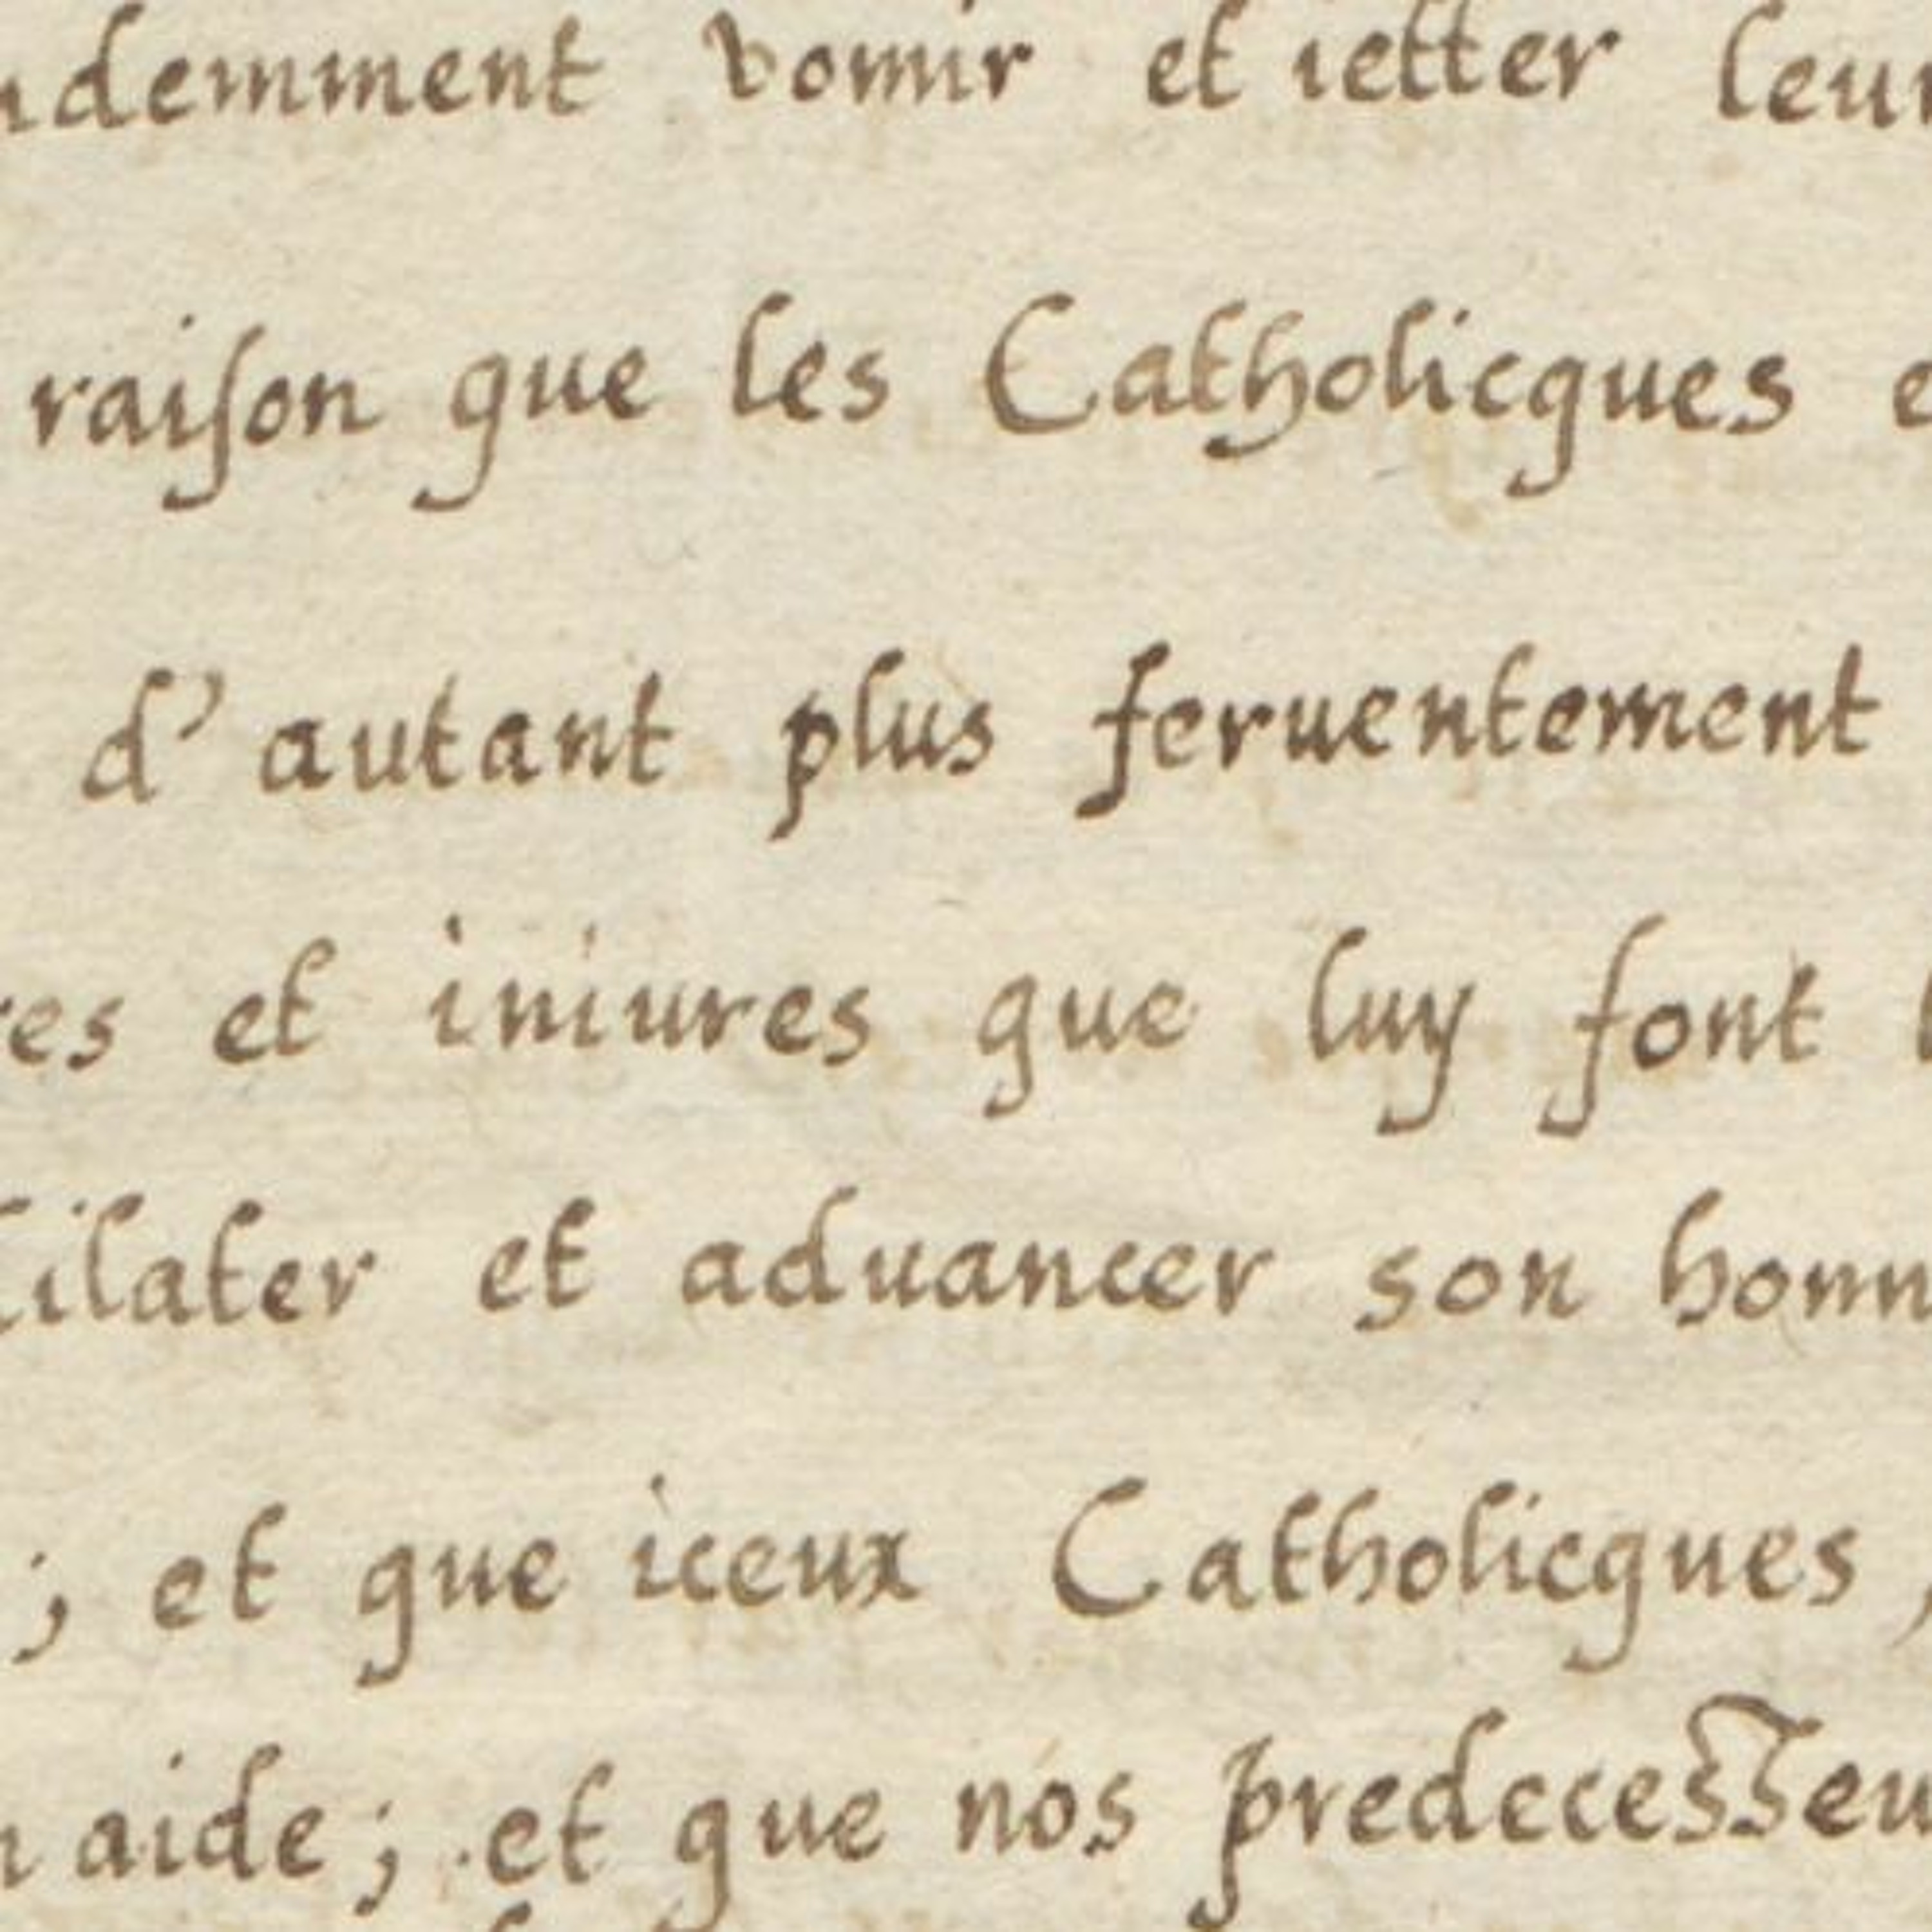 demment vomir et ietter leur
raison que les Catholicques
d'autant plus feruentement
res et iniures que luy font
dilater et aduancer son honn
; et que iceux Catholicques,
aide; et que nos predecesseu